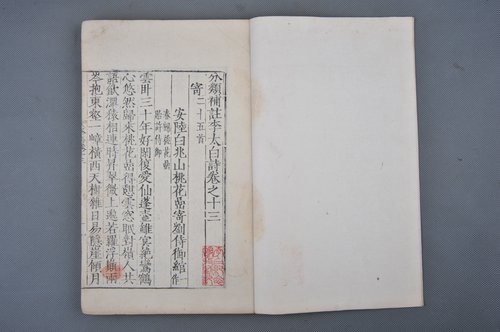 分類補註李太白詩卷之十三
寄二十五首
安陸白兆山桃花巖寄劉侍御綰
雲卧三十年好閑復愛仙蓬壺雖冥絶鸞鶴
心悠然歸來桃花巖得憩雲窓眠對嶺人共
語飲潭猿相連時昇翠微上邈若羅浮巔兩
岑抱東壑一嶂橫西天樹雜日易隱崖傾月